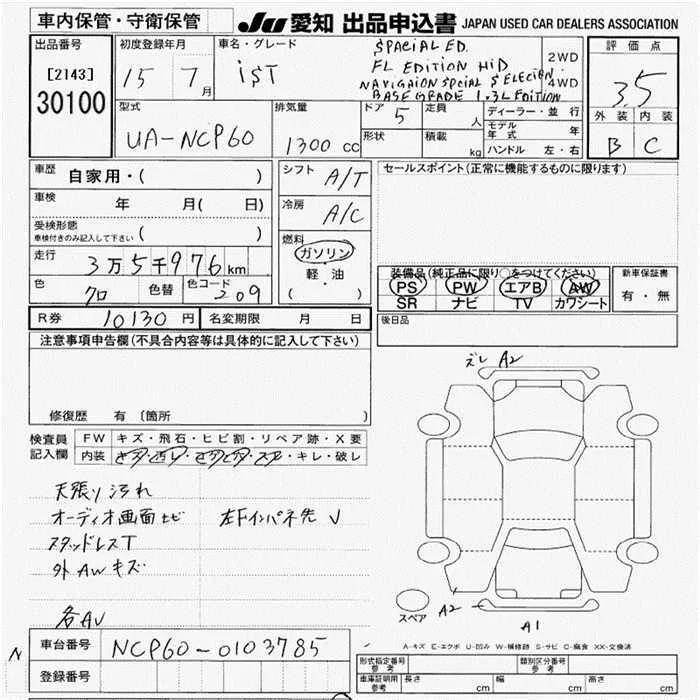 車内保管・守衛保管
JU 愛知 出品申込書 JAPAN USED CAR DEALERS ASSOCIATION
出品番号
[2143]
30100
初度登録年月
15 7月
車名・グレード
iST
SPACiAL ED.
FL EDITION HiD
NAVIGAION SPCiAL S ELECIEN
BASE GRADE 1.3L EDITION
2WD
4WD
評価点
3.5
外装 内装
B C
型式
UA-NCP60
排気量
1300 cc
ドア
5
定員
人
形状
積載
kg
ディーラー・並行
モデル年式 年
ハンドル 左・右
車歴
自家用・( )
車検
年 月( 日)
受検形態
車検付きのみ記入して下さい ( )
走行
3万5千976km
色
クロ
色替
色コード
209
シフト
A/T
冷房
A/C
燃料
ガソリン
軽・油
( )
セールスポイント(正常に機能するものに限ります)
装備品(純正品に限り○をつけてください)
PS PW エアB AW
SR ナビ TV カワシート
新車保証書
有・無
後日品
R券 10130円 名変期限 月 日
注意事項申告欄(不具合内容等は具体的に記入して下さい)
修復歴 有 〔箇所 〕
検査員記入欄
FW キズ・飛石・ヒビ割・リペア跡・X要
内装 ・キレ・破レ
天張り汚れ
オーディオ画面キビ 左Fインパネ先 V
スタッドレスT
外AWキズ
各AV
ズレ A2
スペア
A2
A1
A-キズ E-エクボ U-凹み W-補修跡 S-サビ C-腐食 XX-交換済
N
車台番号 NCP60-0103785
登録番号
形式指定番号 参考
類別区分番号 参考
車庫証明用 参考
長さ cm
幅 cm
高さ cm